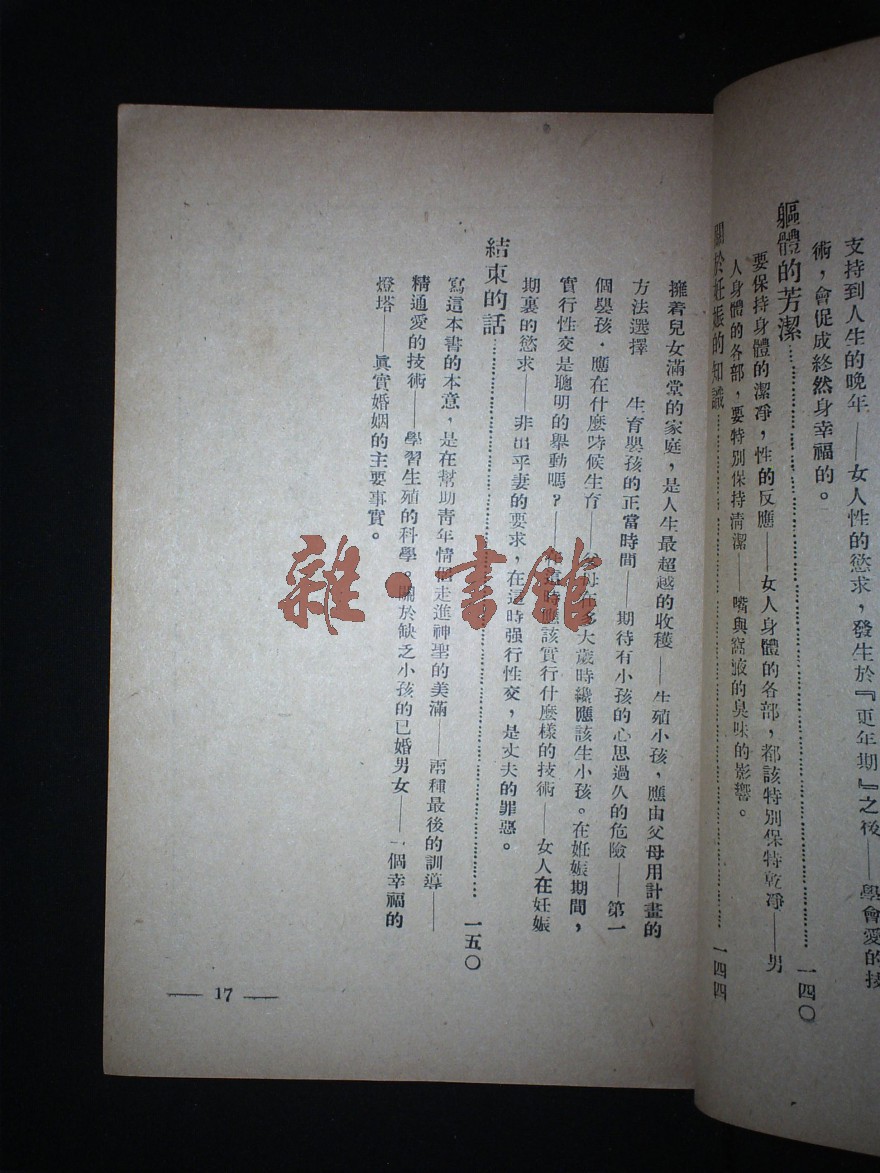 支持到人生的晚年——女人性的慾求，發生於『更年期』之後——學會愛的技
術，會促成終然身幸福的。
軀體的芳潔……一四〇
要保持身體的潔凈，性的反應——女人身體的各部，都該特別保特乾凈——男
人身體的各部，要特別保持清潔——嘴與窩液的臭味的影響。
關於妊娠的知識……一四四
擁着兒女滿堂的家庭，是人生最超越的收穫——生殖小孩，應由父母用計畫的
方法選擇 生育嬰孩的正當時間——期待有小孩的心思過久的危險——第一
個嬰孩，應在什麼時候生育——父母在多大歲時纔應該生小孩。在妊娠期間，
實行性交是聰明的舉動嗎？——在這時應該實行什麼樣的技術——女人在妊娠
期裏的慾求——非出乎妻的要求，在這時强行性交，是丈夫的罪惡。
結束的話……一五〇
寫這本書的本意，是在幫助青年情侶走進神聖的美滿——兩種最後的訓導——
精通愛的技術——學習生殖的科學。關於缺乏小孩的已婚男女——一個幸福的
燈塔——眞實婚姻的主要事實。
— 17 —
雜·書館